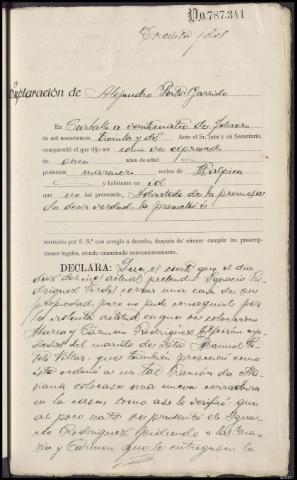 D.0.787.341
Treinta y dos
Declaración de Alejandro Porto Garrido
En Carballo a veinticuatro de febrero
de mil novecientos treinta y dos Ante el Sr. Juez y mi Secretario,
compareció el que dijo ser como va expresado
de años de edad
profesión marinero vecino de Malpica
y habitante en id
que no fué procesado, Advertido de la promesa
de decir verdad, la prometió é
instruido por S. S.ª con arreglo a derecho, después de ofrecer cumplir las prescrip-
ciones legales, siendo examinado convenientemente.
DECLARA: Que es cierto que el dia
diez del mes actual pretendió Ignacio Ro-
driguez Verdes cerrar una casa de su
propiedad, pero no pudo conseguirlo por
la actitud en que se colocaron
Maria y Cármen Rodriguez
del marido de esta Manuel
Villar, que tambien presenció como
este ordenó a un tal Ramón de
colocase una nueva cerradura
en la casa, como así lo verificó que
al poco rato se presentó el Igna-
cio Rodriguez pidiendo a las Ma-
ria y Cármen que le entregasen la